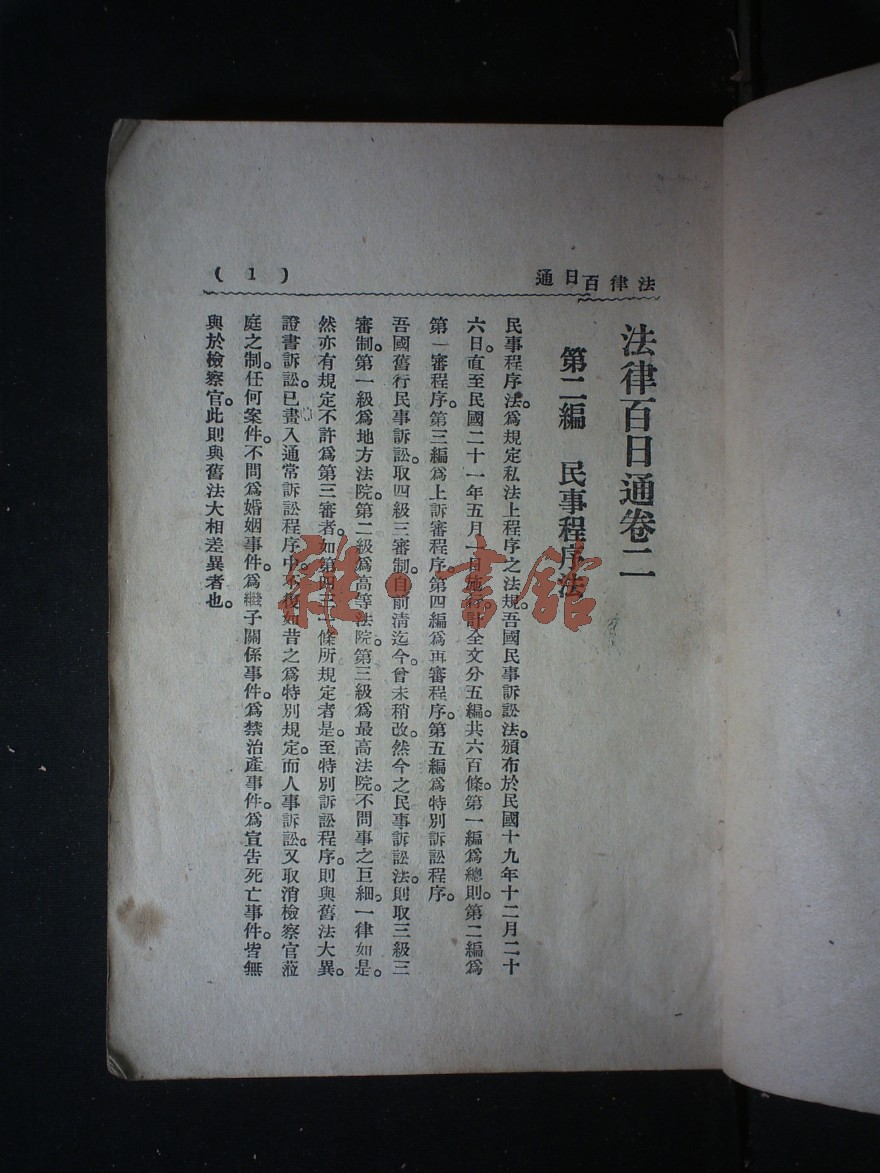 法律百日通
( 1 )
法律百日通卷二
第二編　民事程序法
民事程序法。爲規定私法上程序之法規。吾國民事訴訟法。頒布於民國十九年十二月二十
六日。直至民國二十一年五月 日施行。計全文分五編。共六百條。第一編爲總則。第二編爲
第一審程序。第三編爲上訴審程序。第四編爲再審程序。第五編爲特別訴訟程序。
吾國舊行民事訴訟。取四級三審制。自前清迄今。曾未稍改。然今之民事訴訟法。則取三級三
審制。第一級爲地方法院。第二級爲高等法院。第三級爲最高法院。不問事之巨細。一律如是。
然亦有規定不許爲第三審者。如第四三 條所規定者是。至特別訴訟程序。則與舊法大異。
證書訴訟。已畫入通常訴訟程序中。不復如昔之爲特別規定。而人事訴訟。又取消檢察官蒞
庭之制。任何案件。不問爲婚姻事件。爲繼子關係事件。爲禁治產事件。爲宣告死亡事件。皆無
與於檢察官。此則與舊法大相差異者也。
雜·書館